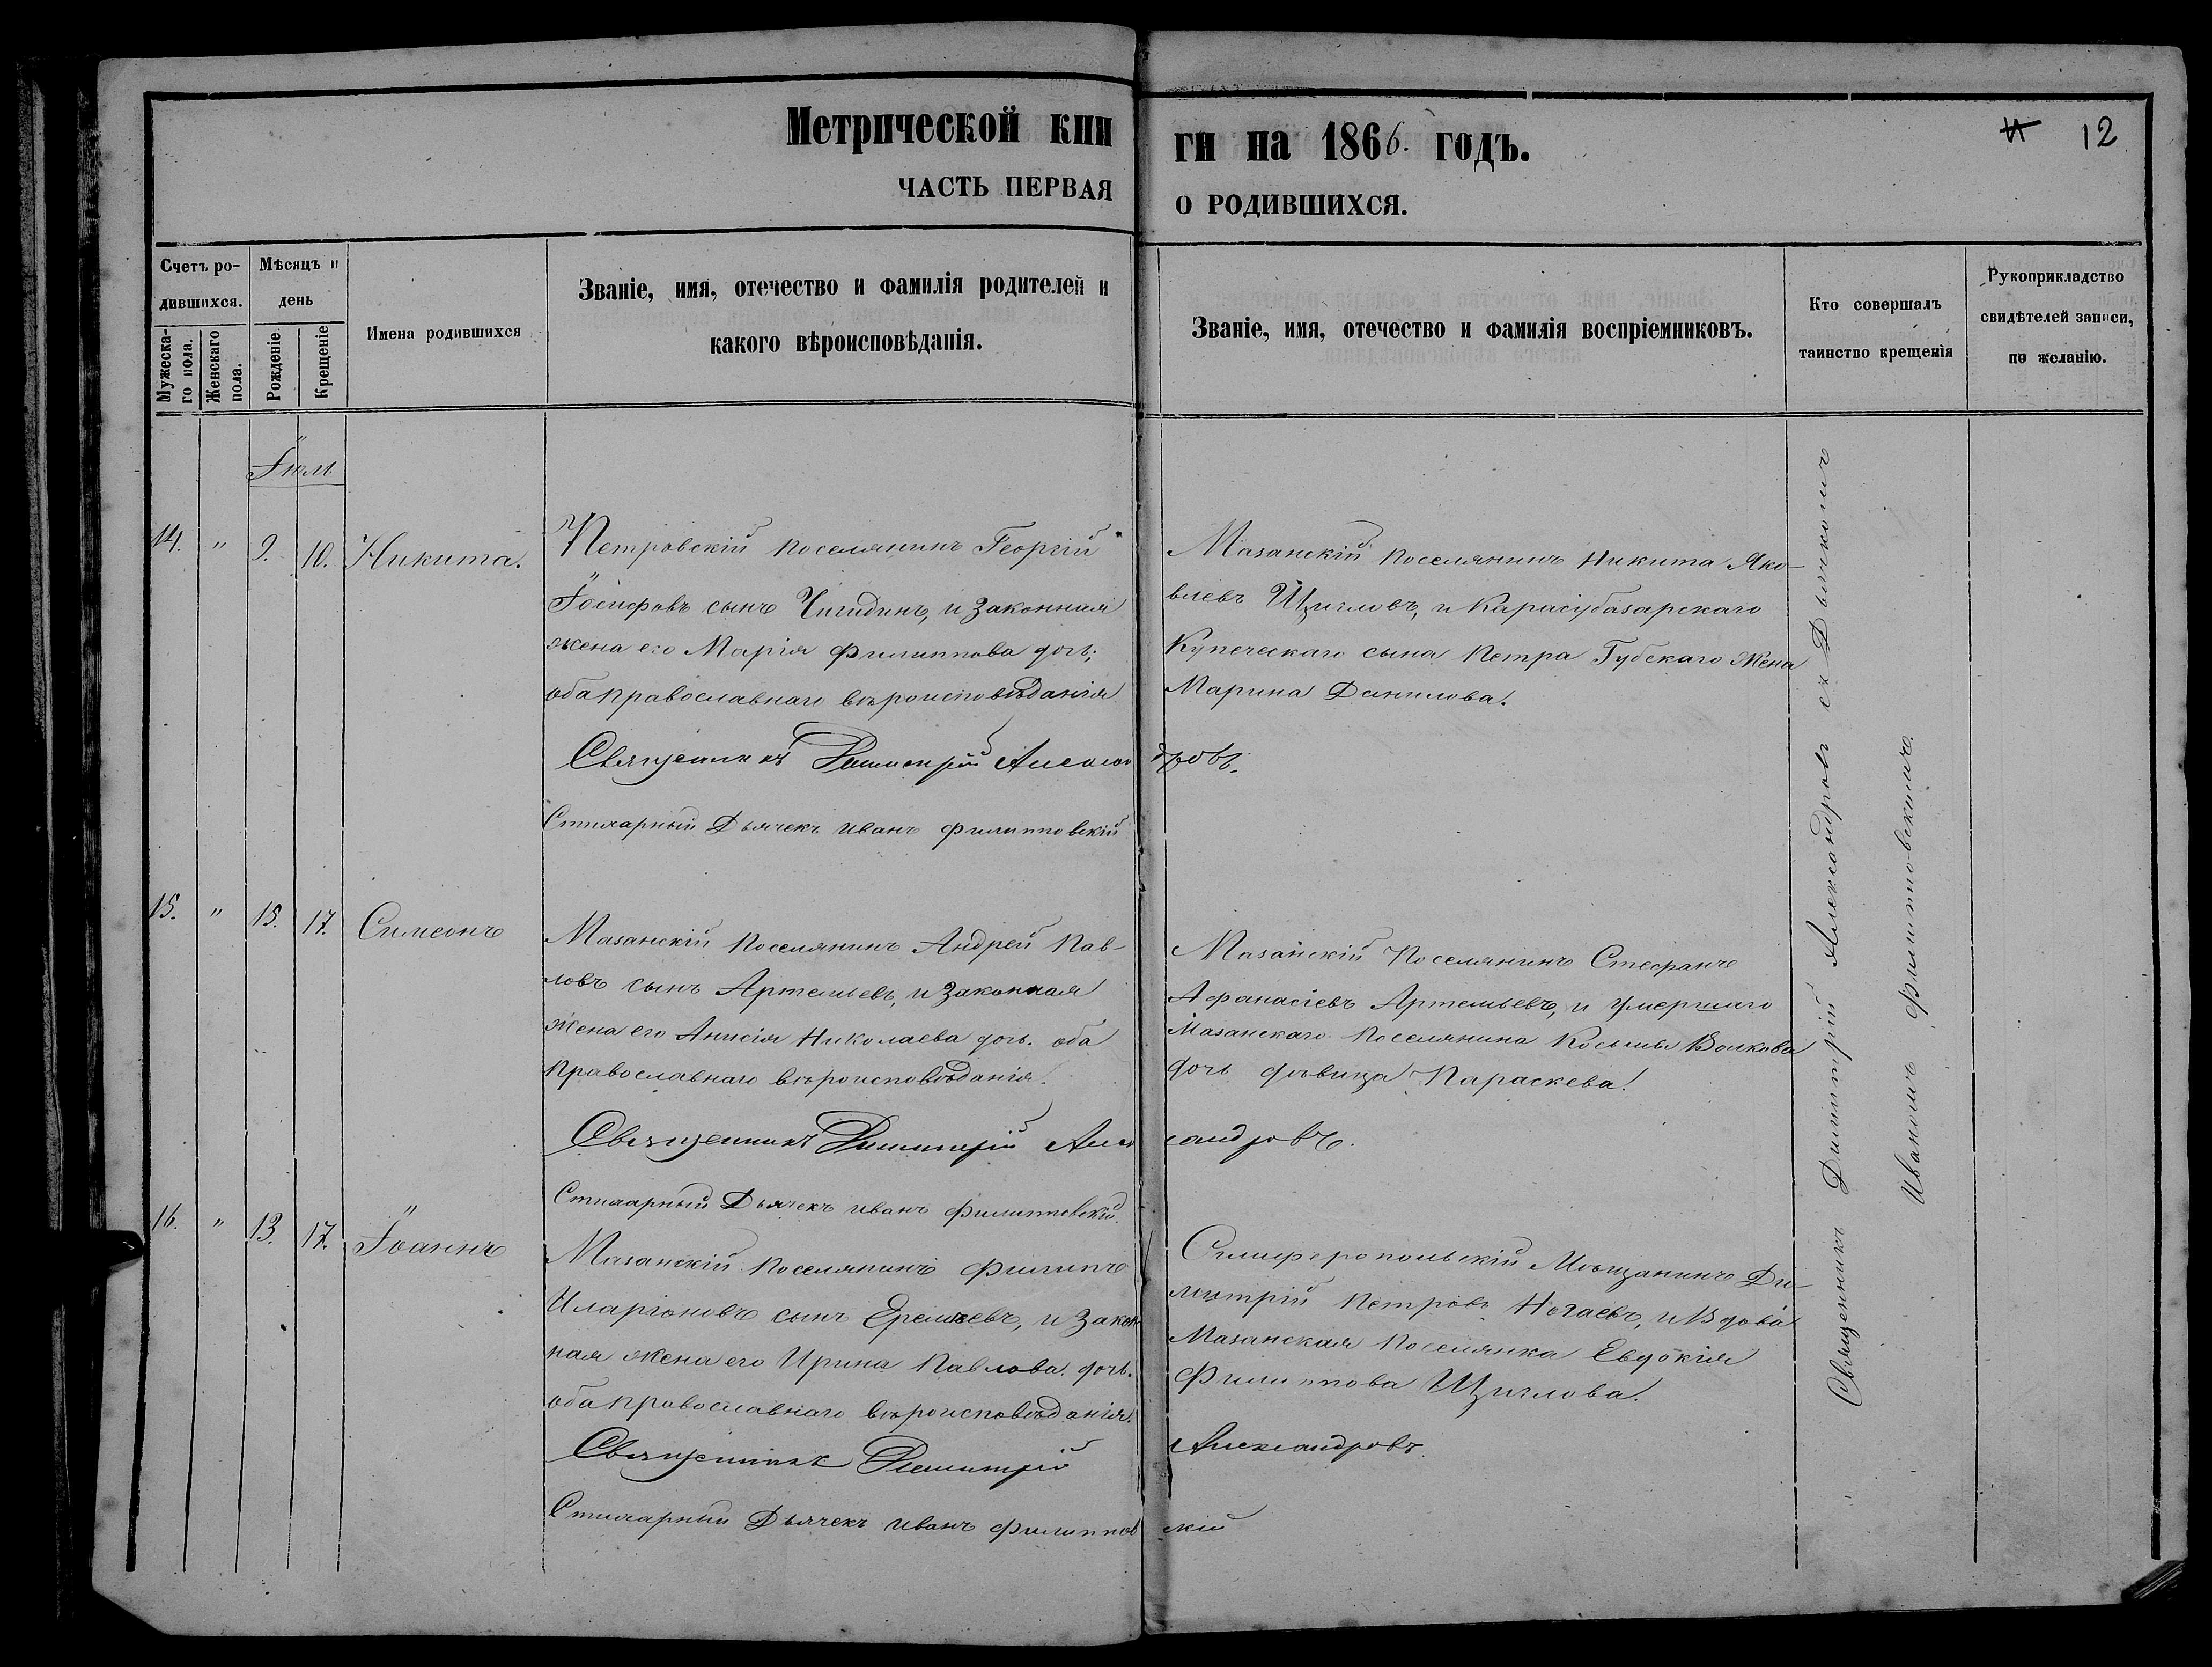 Метрической кни
ги на 1866. годъ.
12
ЧАСТЬ ПЕРВАЯ
О РОДИВШИХСЯ.
Счетъ ро-
дившихся.
Мужеска-
го пола.
Женскаго
пола.
Мѣсяцъ и
день
Рожденіе.
Крещеніе
Имена родившихся
Званіе, имя, отечество и фамилія родителей и
какого вѣроисповѣданія.
Званіе, имя, отечество и фамилія воспріемниковъ.
Кто совершалъ
таинство крещенія
Рукоприкладство
свидѣтелей записи,
по желанію.
14. " 9. 10. Никита.
Петровскій поселянинъ Георгій
Іосифовъ сынъ Чигидинъ, и законная
жена его Марія Филиппова дочь;
оба православнаго вѣроисповѣданія
Мазанскій поселянинъ Никита Яко-
влевъ Щигловъ, и Карасубазарскаго
Купеческаго сына Петра Губскаго жена
Марина Данилова.
Священникъ Димитрій Александровъ.
Стихарный Дьячекъ Иванъ Филипповскій
15. " 15. 17. Симеонъ
Мазанскій поселянинъ Андрей Пав-
ловъ сынъ Артемьевъ, и законная
жена его Анисія Николаева дочь. оба
православнаго вѣроисповѣданія.
Мазанскій Поселянинъ Стефанъ
Афанасіевъ Артемьевъ, и умершаго
Мазанскаго поселянина Косьмы Волкова
дочь дѣвица Параскева.
Священникъ Димитрій Александровъ.
Стихарный Дьячекъ Иванъ Филипповскій.
16. " 13. 17. Іоаннъ
Мазанскій поселянинъ Филипъ
Иларіоновъ сынъ Еремѣевъ, и закон
ная жена его Ирина Павлова дочь.
оба православнаго вѣроисповѣданія.
Симферопольскій Мѣщанинъ Ди-
митрій Петровъ Ногаевъ, и Вдова
Мазанская поселянка Евдокія
Филиппова Щиглова.
Священникъ Димитрій Александровъ.
Стихарный Дьячекъ Иванъ Филипповскій
Священникъ Димитрій Александровъ съ Дьячкомъ
Иваномъ Филипповскимъ.